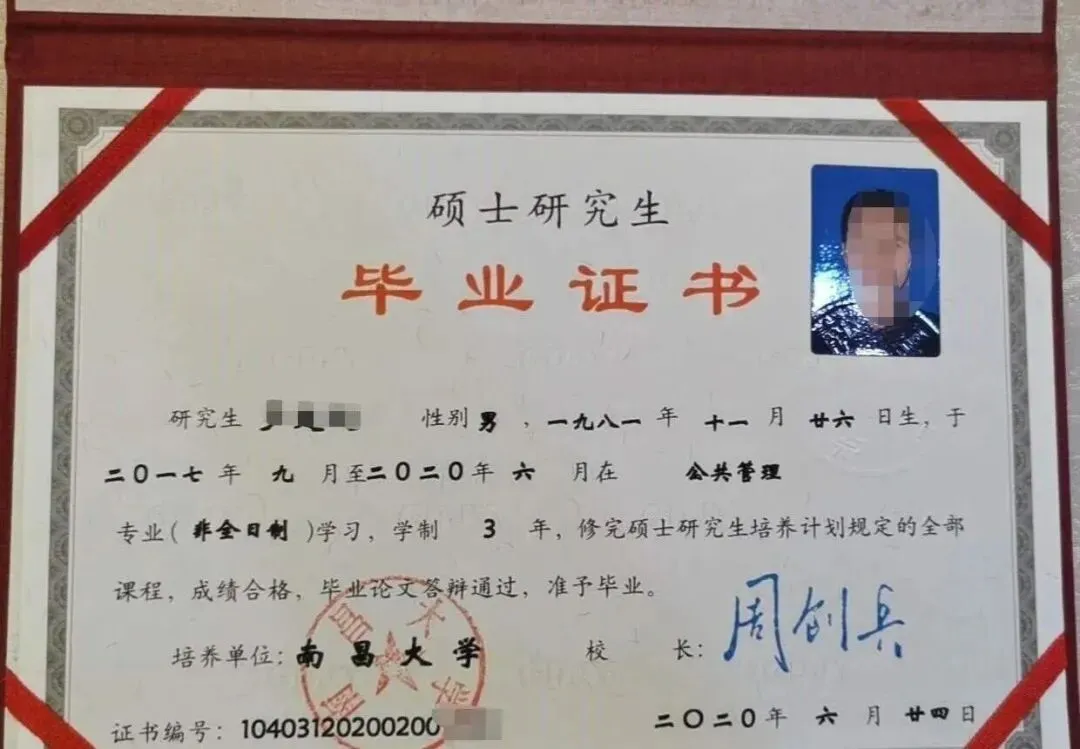 硕士研究生
毕业证书
研究生 性别男，一九八一年 十一月 廿六日生，于
二〇一七年 九 月至二〇二〇年 六 月在 公共管理
专业(非全日制)学习，学制 3 年，修完硕士研究生培养计划规定的全部
课程，成绩合格，毕业论文答辩通过，准予毕业。
培养单位：南昌大学 校 长：周创兵
证书编号：10403120200200 二〇二〇年 六 月 廿四日
南昌大学